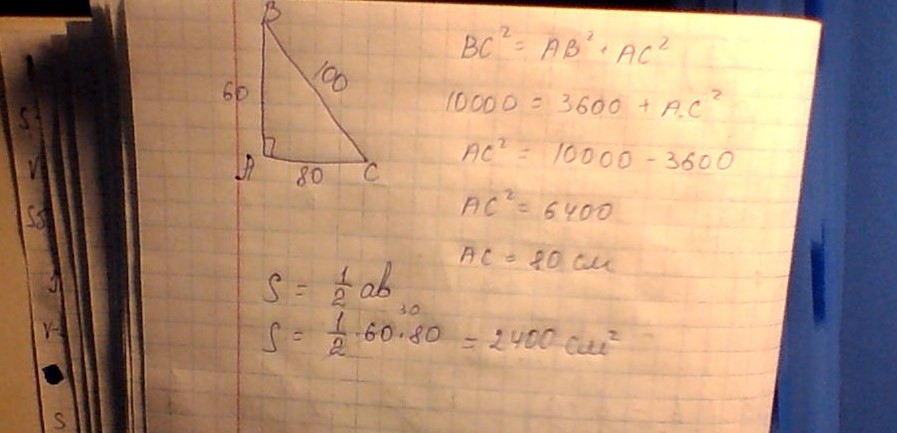 B
60
100
A
80
C
BC² = AB² + AC²
10000 = 3600 + AC²
AC² = 10000 - 3600
AC² = 6400
AC = 80 см
S = 1/2 ab
30
S = 1/2 · 60 · 80 = 2400 см²
S